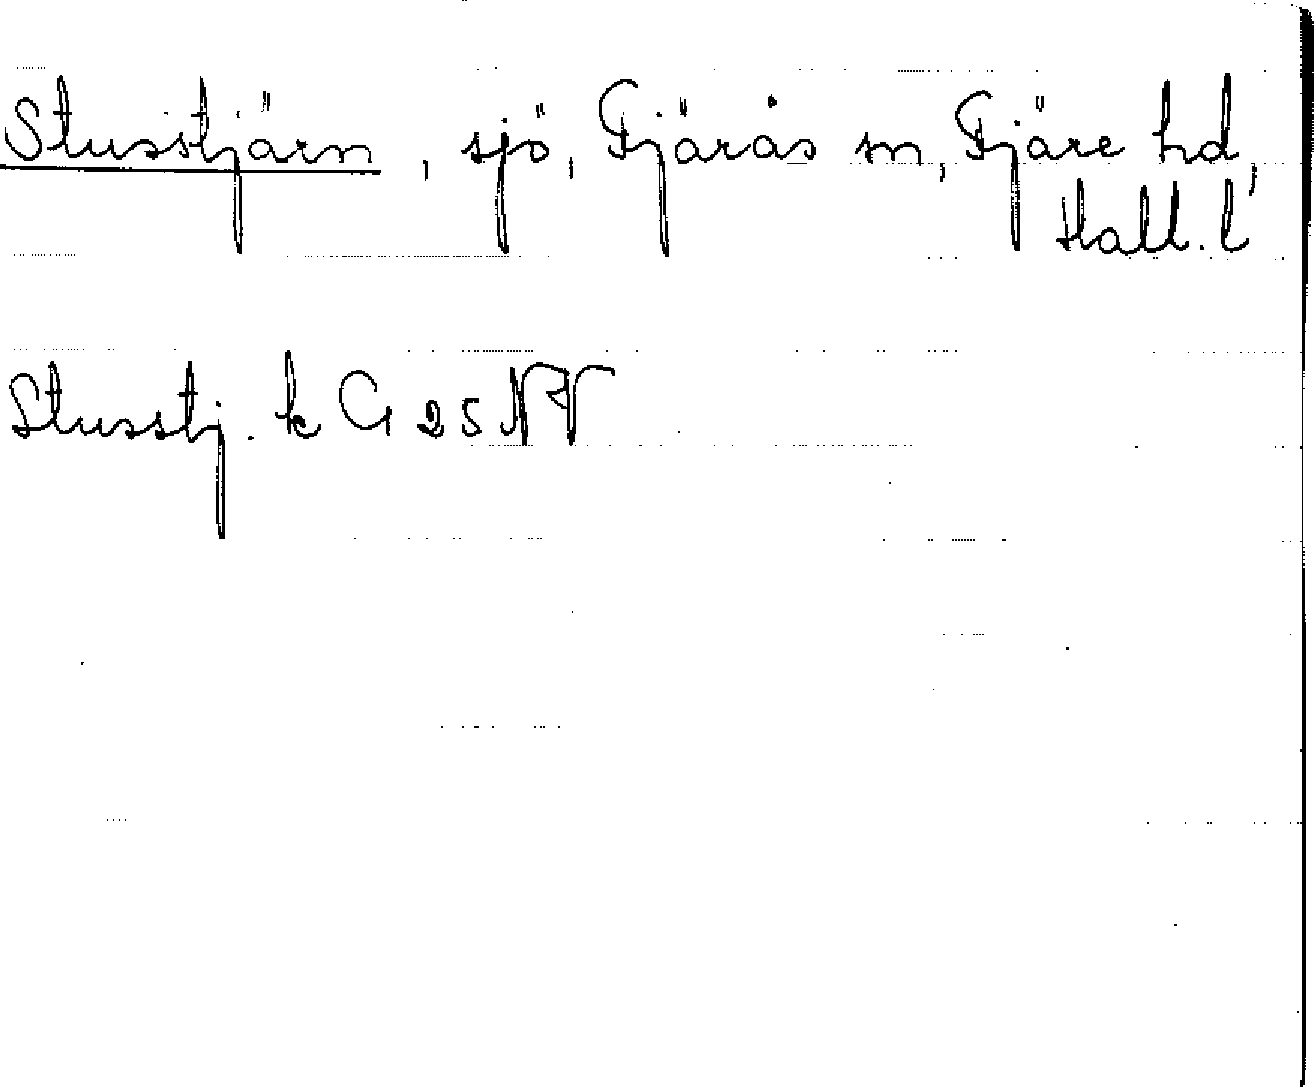 Stusstjärn, sjö, Fjärås sn, Fjäre hd,
Hall. l
Stusstj. k G 25 NV